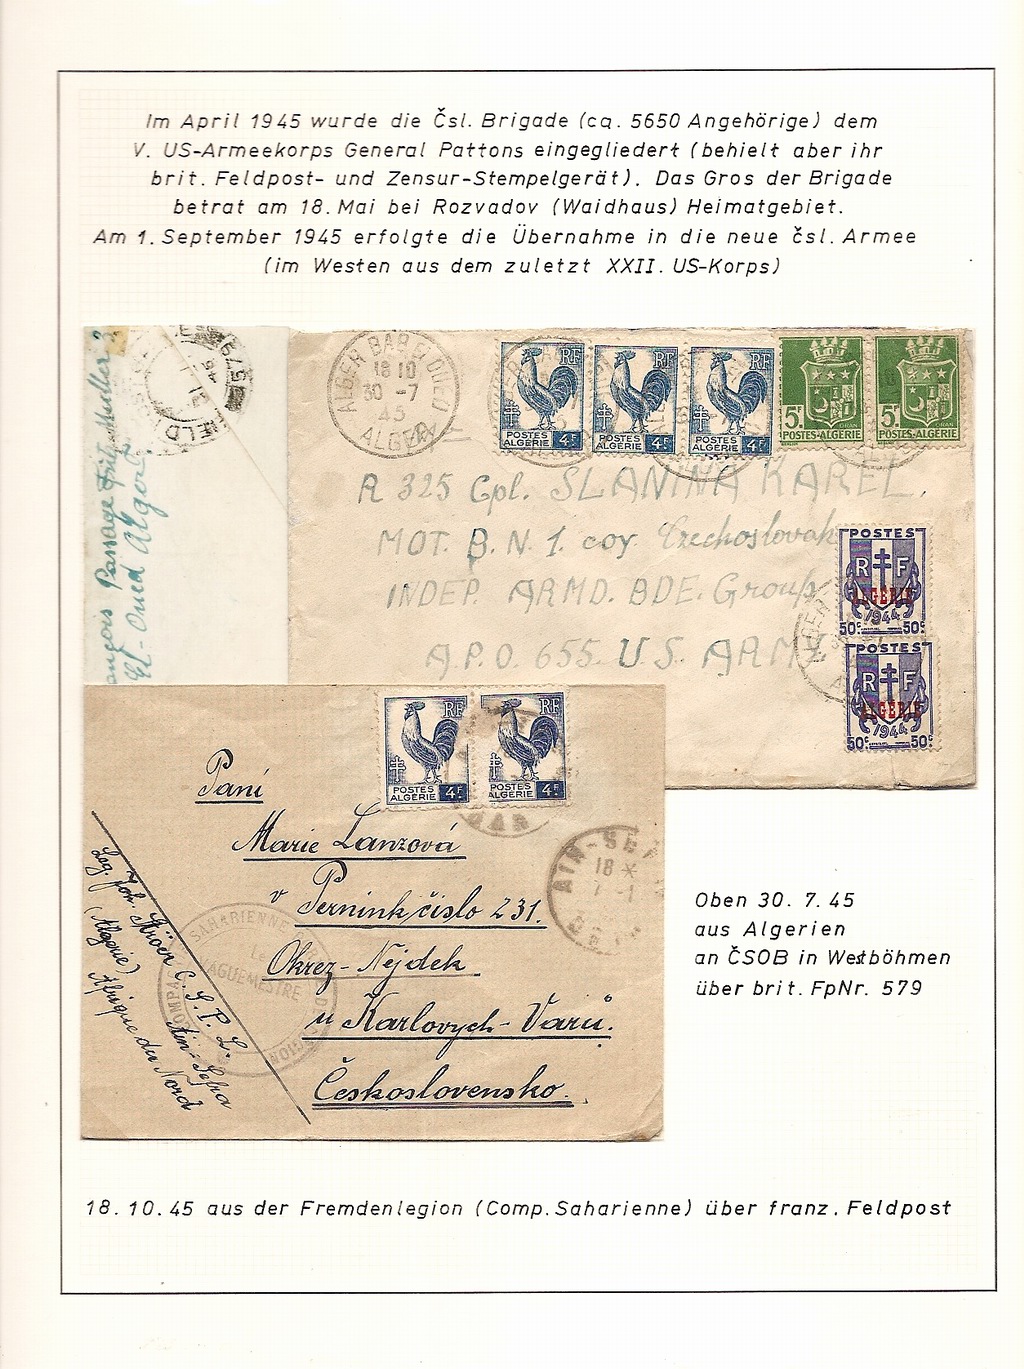 Im April 1945 wurde die Čsl. Brigade (ca. 5650 Angehörige) dem
V. US-Armeekorps General Pattons eingegliedert (behielt aber ihr
brit. Feldpost- und Zensur-Stempelgerät). Das Gros der Brigade
betrat am 18. Mai bei Rozvadov (Waidhaus) Heimatgebiet.
Am 1. September 1945 erfolgte die Übernahme in die neue čsl. Armee
(im Westen aus dem zuletzt XXII. US-Korps)
Passage
El-Oued Alger
FIELD
579
ALGER BAB EL OUED
18 10
30 -7
45
ALGER
RF
POSTES
ALGÉRIE
4F
RF
POSTES
ALGÉRIE
4F
RF
POSTES
ALGÉRIE
4F
5F
ORAN
POSTES-ALGÉRIE
5F
ORAN
POSTES-ALGÉRIE
A 325 Cpl. SLANINA KAREL.
MOT. B.N. 1. coy Czechoslovak
INDEP. ARMD. BDE. Group
A.P.O. 655. U.S. ARMY
POSTES
RF
ALGÉRIE
1944
50c 50c
RF
ALGÉRIE
1944
50c 50c
RF
POSTES
ALGÉRIE
4F
RF
POSTES
ALGÉRIE
4F
Paní
Marie Lanzová
v Pernink číslo 231.
Okrez-Nejdek
u Karlovych-Varů.
Československo.
AIN-SEF
18 *
SAHARIENNE
VAGUEMESTRE
Leg. Joh.
C. S. P. L.
Ain-Sefra
(Algerie)
Afrique du Nord
Oben 30. 7. 45
aus Algerien
an ČSOB in Westböhmen
über brit. FpNr. 579
18. 10. 45 aus der Fremdenlegion (Comp. Saharienne) über franz. Feldpost